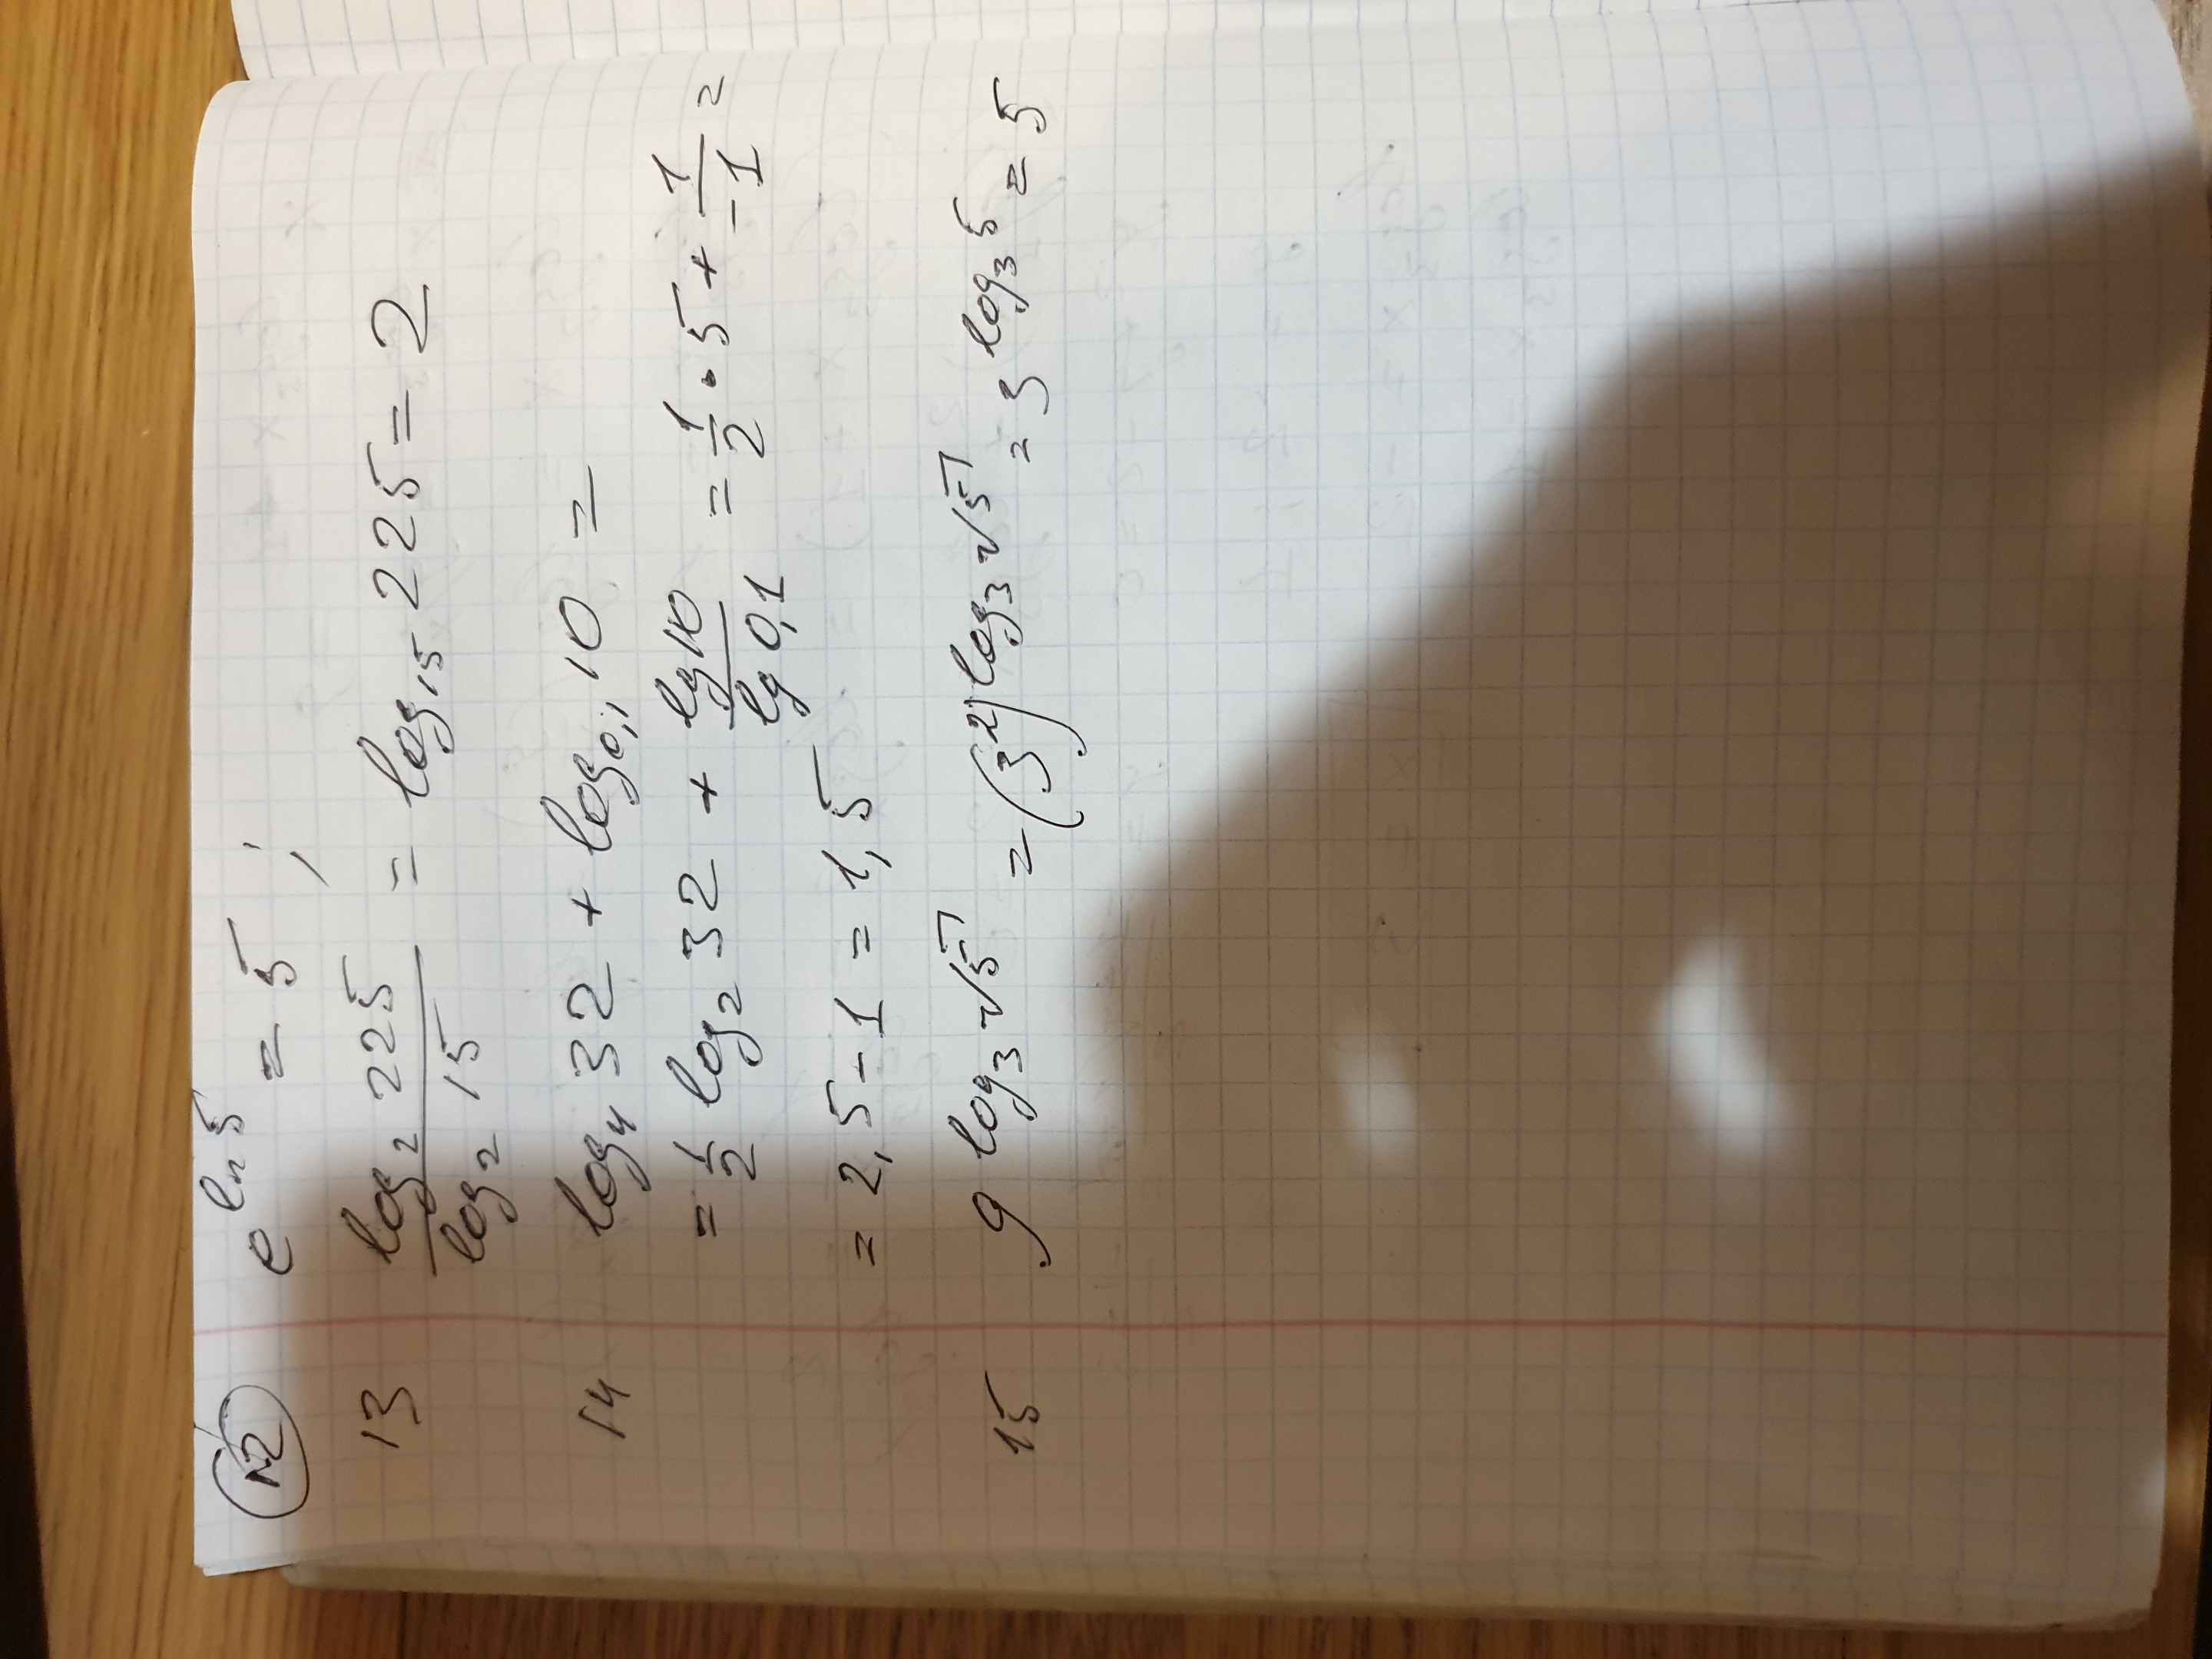 12 e^{ln 5} = 5 ;
13 \frac{log_2 225}{log_2 15} = log_{15} 225 = 2
14 log_4 32 + log_{0,1} 10 =
= \frac{1}{2} log_2 32 + \frac{lg 10}{lg 0,1} = \frac{1}{2} · 5 + \frac{1}{-1} =
= 2,5 - 1 = 1,5
15 9^{log_3 √5} = (3^2)^{log_3 √5} = 3^{log_3 5} = 5